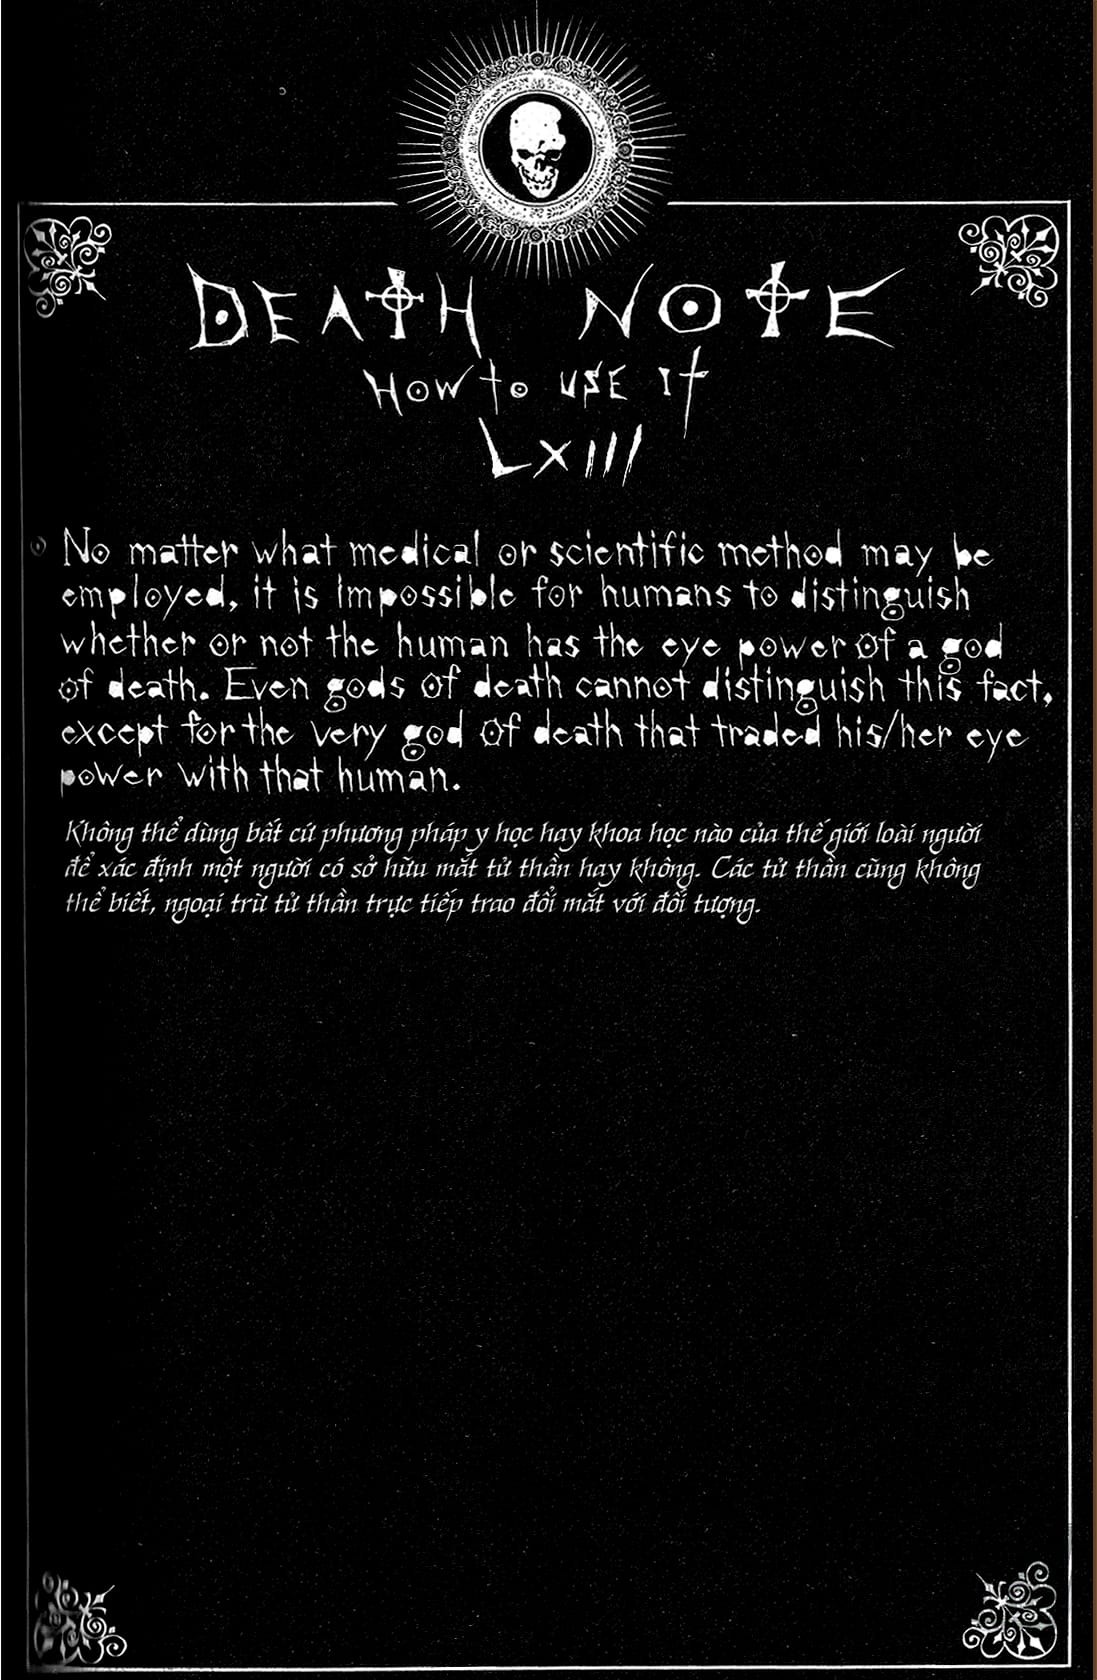 DEATH NOTE
How to use it
LXIII
No matter what medical or scientific method may be
employed, it is impossible for humans to distinguish
whether or not the human has the eye power of a god
of death. Even gods of death cannot distinguish this fact,
except for the very god of death that traded his/her eye
power with that human.
Không thể dùng bất cứ phương pháp y học hay khoa học nào của thế giới loài người
để xác định một người có sở hữu mắt tử thần hay không. Các tử thần cũng không
thể biết, ngoại trừ tử thần trực tiếp trao đổi mắt với đối tượng.